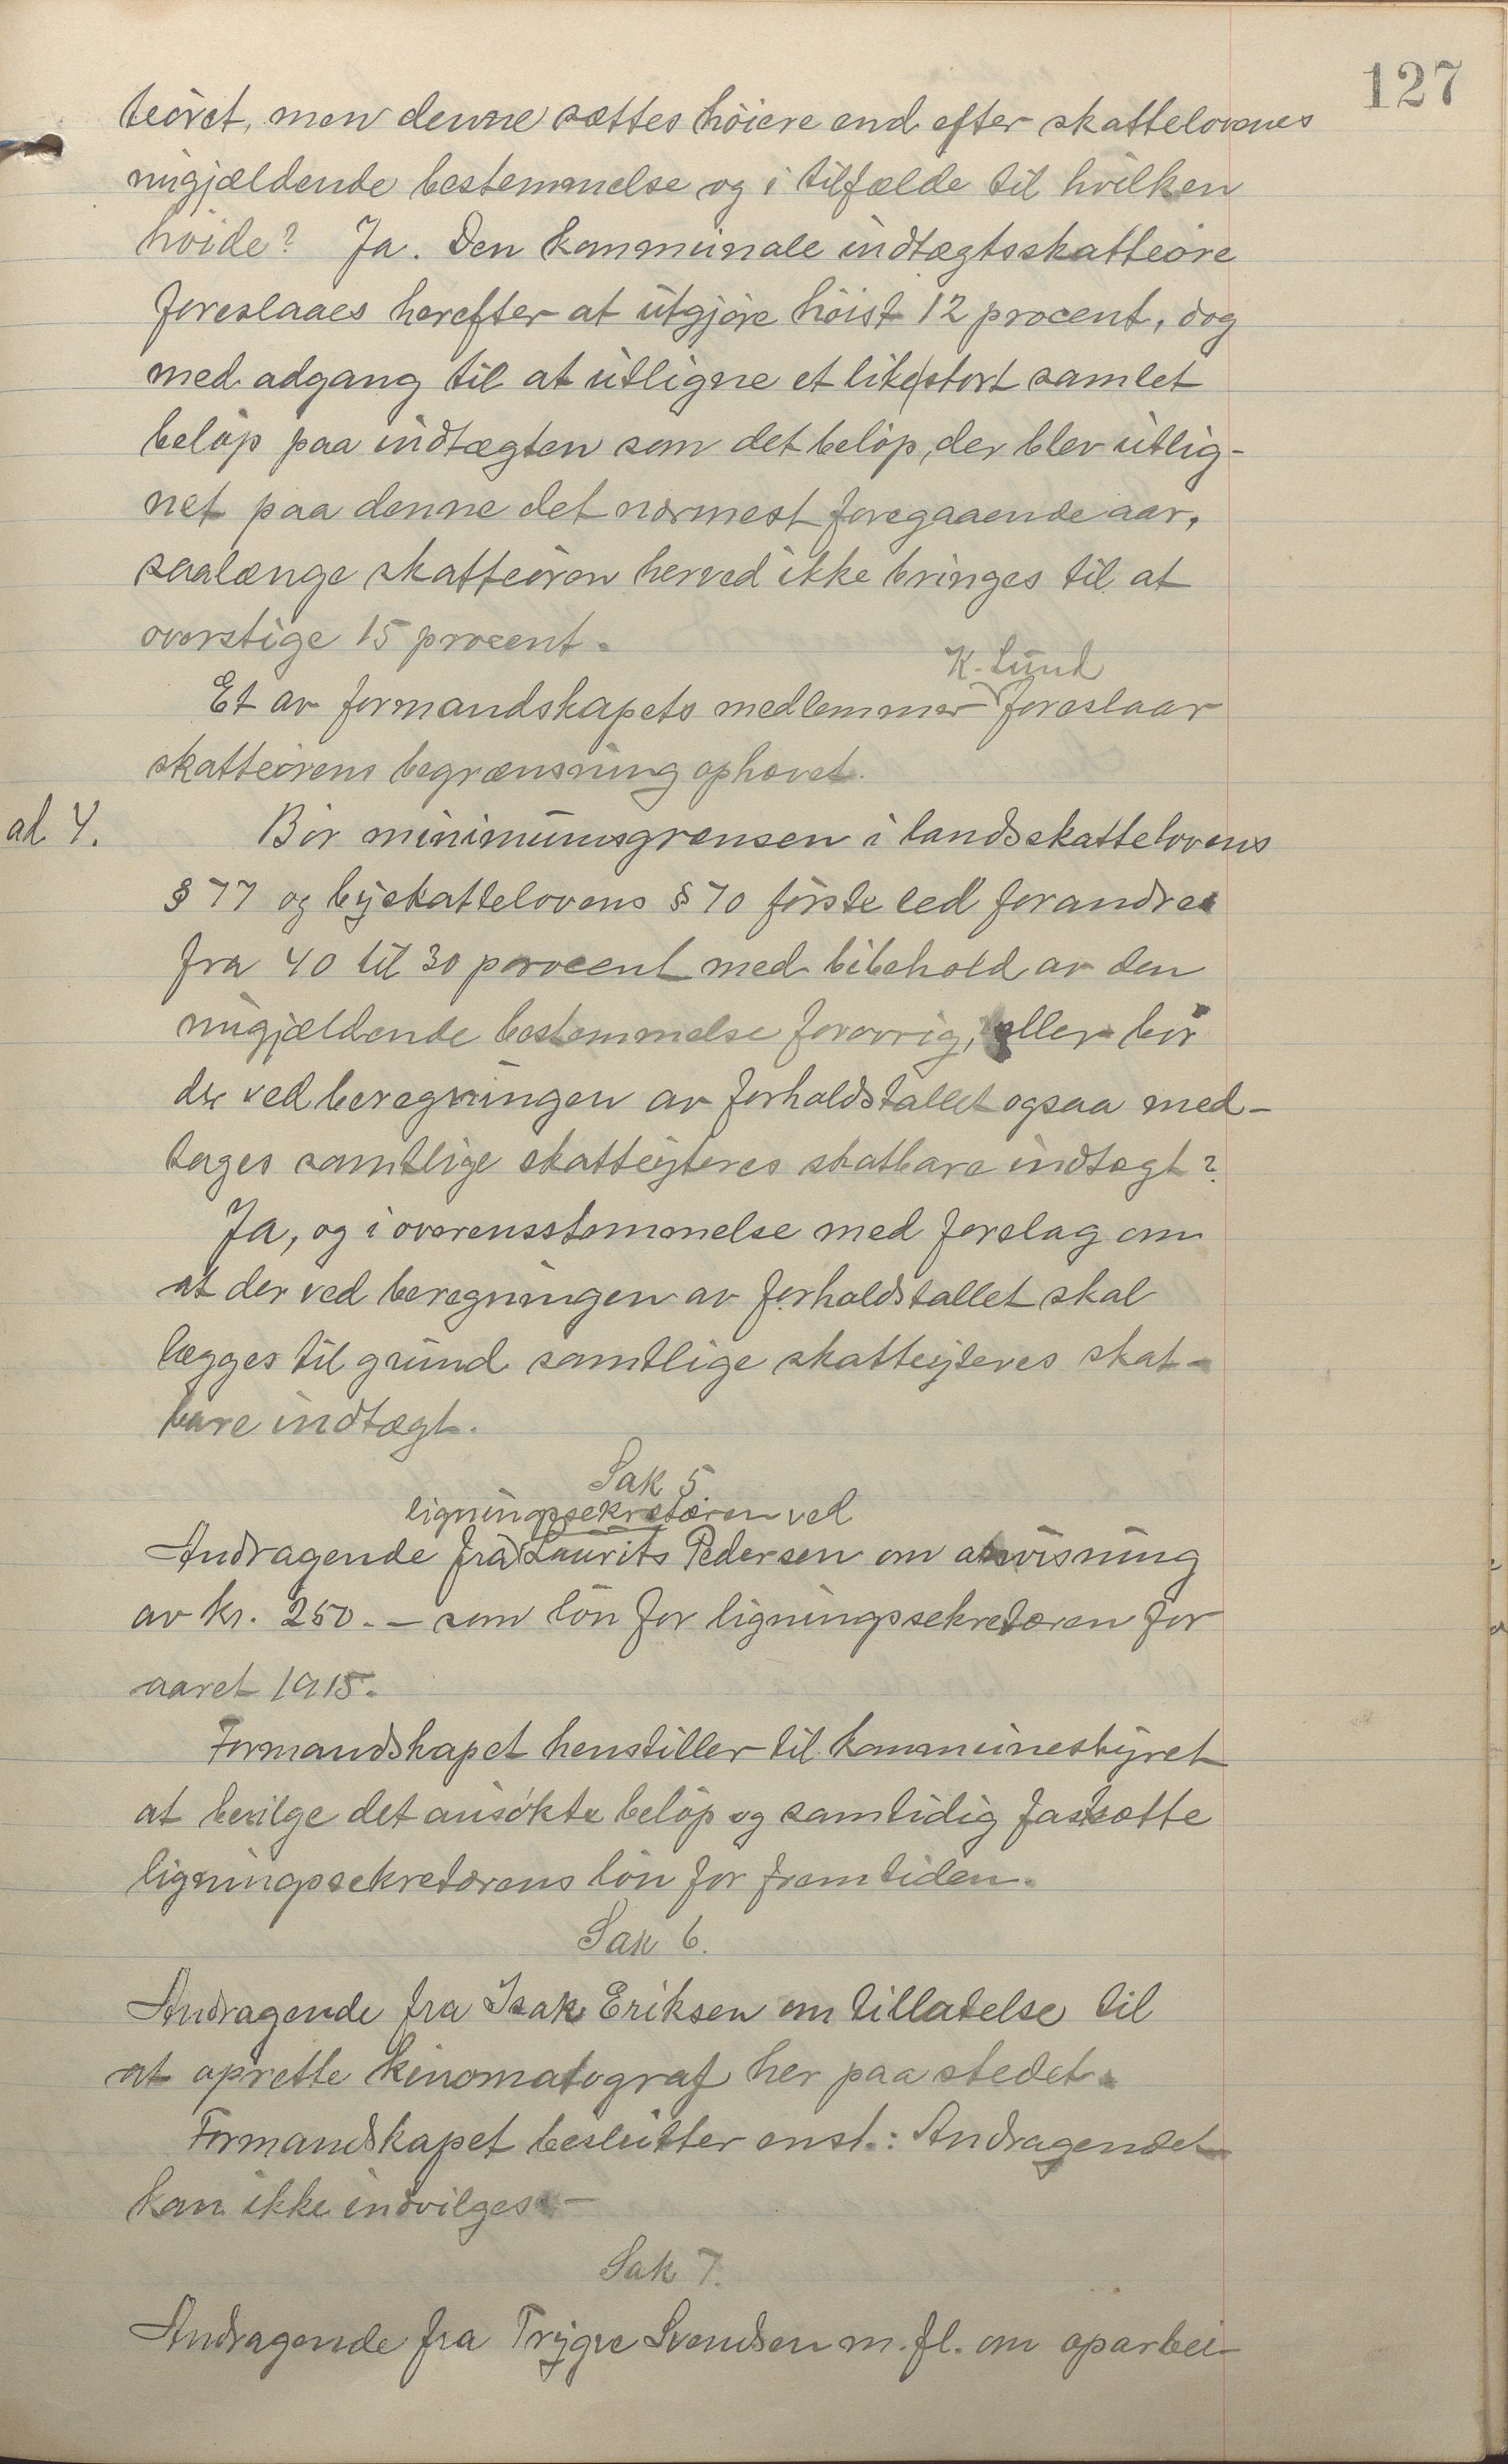 127
teöret, men denne sættes höiere end efter skattelovenes
nugjældende bestemmelse og i tilfælde til hvilken
höide? Ja. Den kommunale indtægtsskatteöre
foreslaaes herefter at utgjöre höist 12 procent, dog
med adgang til at utligne et like stort samlet
belöp paa indtægten som det belöp, der blev utlig-
net paa denne det nærmest foregaaende aar,
saalænge skatteören herved ikke bringes til at
overstige 15 procent.
K. Lund
Et av formandskapets medlemmer foreslaar
skatteörens begrænsning ophævet.
ad 4. Bör minimumsgrænsen i landsskattelovens
§ 77 og byskattelovens § 70 förste led forandres
fra 40 til 30 procent med bibehold av den
nugjældende bestemmelse forövrig, eller bör
der ved beregningen av forholdstallet ogsaa med-
tages samtlige skatteyteres skatbare indtægt?
Ja, og i overensstemmelse med forslag om
at der ved beregningen av forholdstallet skal
lægges til grund samtlige skatteyteres skat-
bare indtægt.
Sak 5
ligningssekretæren ved
Andragende fra Laurits Pedersen om anvisning
av kr. 250.- som lön for ligningssekretæren for
aaret 1915.
Formandskapet henstiller til kommunestyret
at bevilge det ansökte belöp og samtidig fastsætte
ligningssekretærens lön for fremtiden.
Sak 6.
Andragende fra Isak Eriksen om tillatelse til
at oprette kinomatograf her paa stedet.
Formandskapet beslutter enst.: Andragendet
kan ikke indvilges.-
Sak 7.
Andragende fra Trygve Svendsen m. fl. om oparbei-